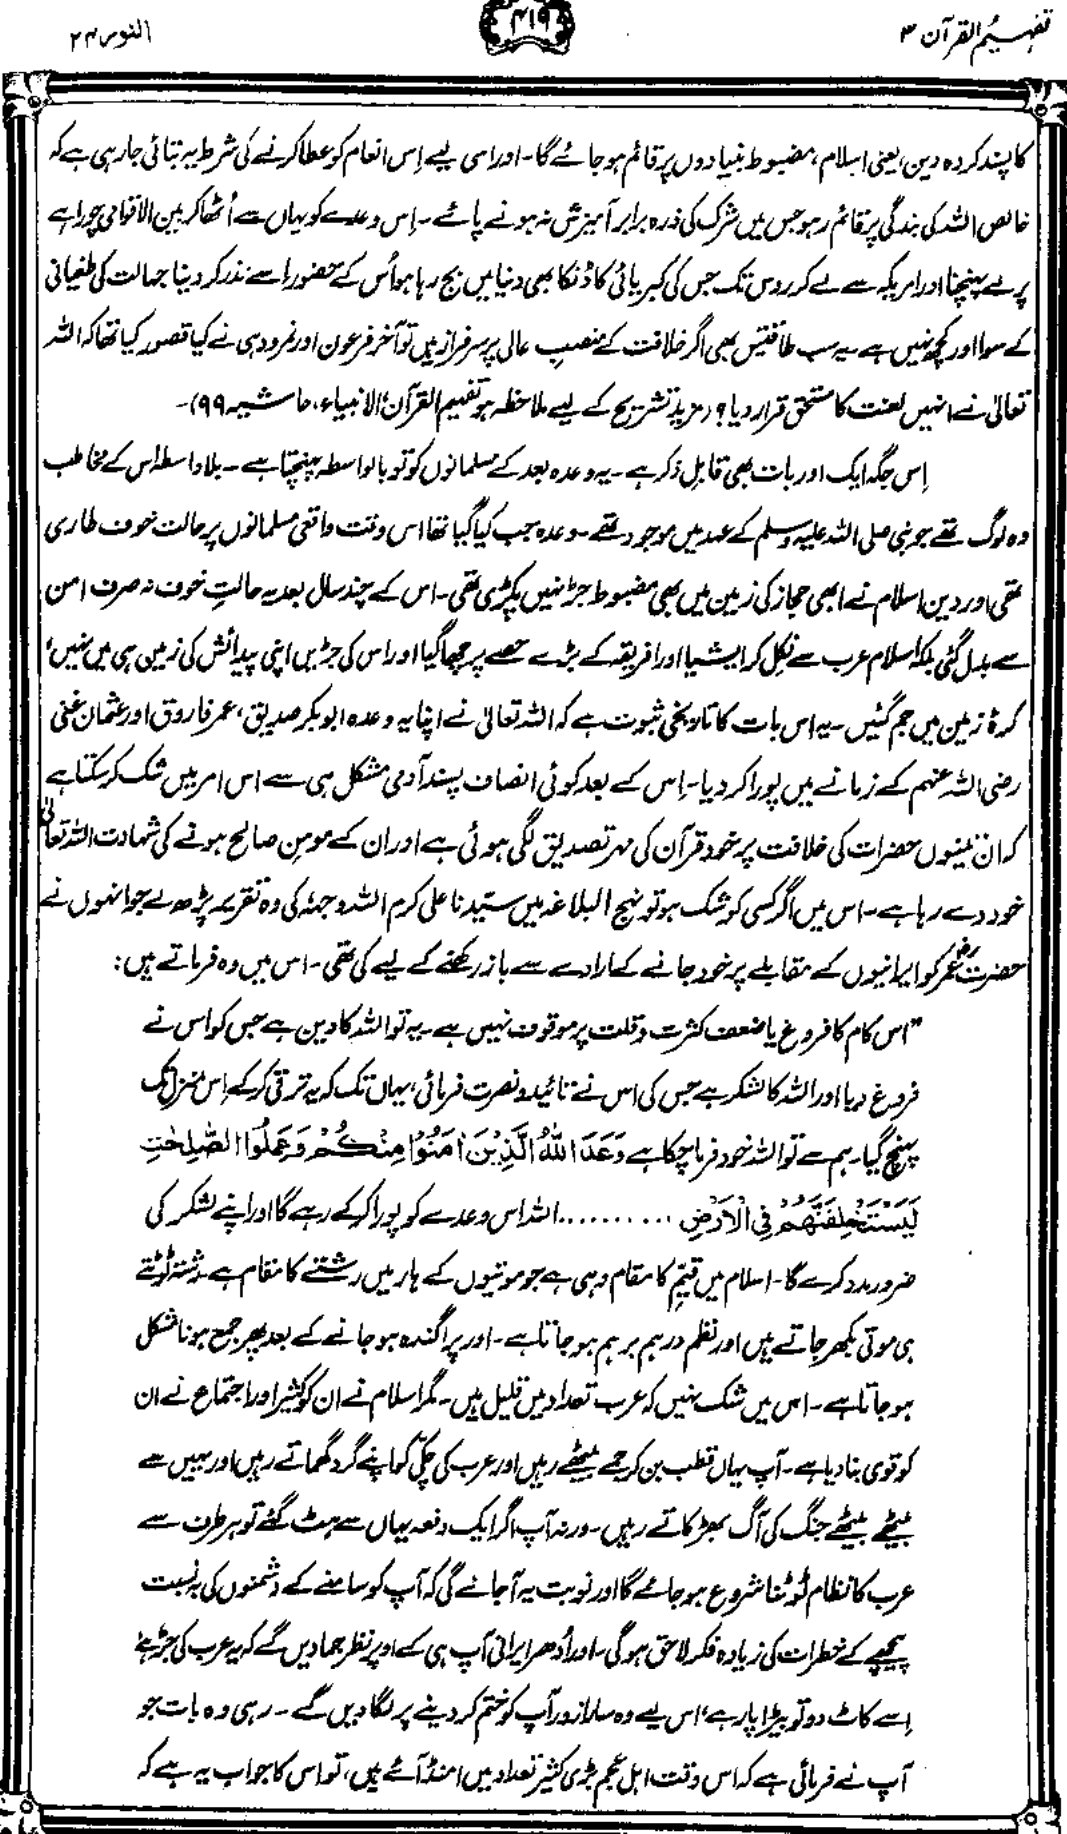 تفہیم القرآن ۳
۴۱۹
النور ۲۴
کا پسند کردہ دین، یعنی اسلام، مضبوط بنیادوں پر قائم ہو جائے گا۔ اور اسی لیے اِس انعام کو عطا کرنے کی شرط یہ بتائی جا رہی ہے کہ
خالص اللہ کی بندگی پر قائم رہو جس میں شرک کی ذرہ برابر آمیزش نہ ہونے پائے۔ اِس وعدے کو یہاں سے اُٹھا کر بین الاقوامی چوراہے
پر لے پہنچنا اور امریکہ سے لے کر روس تک جس کی کبریائی کا ڈنکا بھی دنیا میں بج رہا ہو اُس کے حضور اسے نذر کر دینا جہالت کی طغیانی
کے سوا اور کچھ نہیں ہے۔ یہ سب طاقتیں بھی اگر خلافت کے منصبِ عالی پر سرفراز ہیں تو آخر فرعون اور نمرود ہی نے کیا قصور کیا تھا کہ اللہ
تعالیٰ نے انہیں لعنت کا مستحق قرار دیا؟ (مزید تشریح کے لیے ملاحظہ ہو تفہیم القرآن، الانبیاء، حاشیہ ۹۹)۔
اِس جگہ ایک اور بات بھی قابلِ ذکر ہے۔ یہ وعدہ بعد کے مسلمانوں کو تو بالواسطہ پہنچتا ہے۔ بلا واسطہ اس کے مخاطب
وہ لوگ تھے جو نبی صلی اللہ علیہ وسلم کے عہد میں موجود تھے۔ وعدہ جب کیا گیا تھا اس وقت واقعی مسلمانوں پر حالت خوف طاری
تھی اور دین اسلام نے ابھی حجاز کی زمین میں بھی مضبوط جڑ نہیں پکڑی تھی۔ اس کے چند سال بعد یہ حالتِ خوف نہ صرف امن
سے بدل گئی بلکہ اسلام عرب سے نکل کر ایشیا اور افریقہ کے بڑے حصے پر چھا گیا اور اس کی جڑیں اپنی پیدائش کی زمین ہی میں نہیں،
کرۂ زمین میں جم گئیں۔ یہ اس بات کا تاریخی ثبوت ہے کہ اللہ تعالیٰ نے اپنا یہ وعدہ ابوبکر صدیق، عمر فاروق اور عثمان غنی
رضی اللہ عنہم کے زمانے میں پورا کر دیا۔ اِس کے بعد کوئی انصاف پسند آدمی مشکل ہی سے اس امر میں شک کر سکتا ہے
کہ ان تینوں حضرات کی خلافت پر خود قرآن کی مہر تصدیق لگی ہوئی ہے اور ان کے مومن صالح ہونے کی شہادت اللہ تعالیٰ
خود دے رہا ہے۔ اس میں اگر کسی کو شک ہو تو نہج البلاغہ میں سیّدنا علی کرم اللہ وجہہٗ کی وہ تقریر پڑھ لے جو انہوں نے
حضرت عمرؓ کو ایرانیوں کے مقابلے پر خود جانے کے ارادے سے باز رکھنے کے لیے کی تھی۔ اس میں وہ فرماتے ہیں:
"اس کام کا فروغ یا ضعف کثرت و قلت پر موقوف نہیں ہے۔ یہ تو اللہ کا دین ہے جس کو اس نے
فروغ دیا اور اللہ کا لشکر ہے جس کی اس نے تائید و نصرت فرمائی، یہاں تک کہ یہ ترقی کر کے اِس منزل تک
پہنچ گیا۔ ہم سے تو اللہ خود فرما چکا ہے وَعَدَ اللّٰهُ الَّذِیْنَ اٰمَنُوْا مِنْكُمْ وَعَمِلُوا الصّٰلِحٰتِ
لَیَسْتَخْلِفَنَّهُمْ فِی الْاَرْضِ .......... اللہ اس وعدے کو پورا کر کے رہے گا اور اپنے لشکر کی
ضرور مدد کرے گا۔ اسلام میں قیّم کا مقام وہی ہے جو موتیوں کے ہار میں رشتے کا مقام ہے۔ رشتہ ٹوٹتے
ہی موتی بکھر جاتے ہیں اور نظم درہم برہم ہو جاتا ہے۔ اور پراگندہ ہو جانے کے بعد پھر جمع ہونا مشکل
ہو جاتا ہے۔ اس میں شک نہیں کہ عرب تعداد میں قلیل ہیں۔ مگر اسلام نے ان کو کثیر اور اجتماع نے ان
کو قوی بنا دیا ہے۔ آپ یہاں قطب بن کر جمے بیٹھے رہیں اور عرب کی چکّی کو اپنے گرد گھماتے رہیں اور یہیں سے
بیٹھے بیٹھے جنگ کی آگ بھڑکاتے رہیں۔ ورنہ آپ اگر ایک دفعہ یہاں سے ہٹ گئے تو ہر طرف سے
عرب کا نظام ٹوٹنا شروع ہو جائے گا اور نوبت یہ آ جائے گی کہ آپ کو سامنے کے دشمنوں کی بہ نسبت
پیچھے کے خطرات کی زیادہ فکر لاحق ہوگی۔ اور اُدھر ایرانی آپ ہی کے اوپر نظر جما دیں گے کہ یہ عرب کی جڑ ہے،
اِسے کاٹ دو تو بیڑا پار ہے، اس لیے وہ سارا زور آپ کو ختم کر دینے پر لگا دیں گے۔ رہی وہ بات جو
آپ نے فرمائی ہے کہ اس وقت اہل عجم بڑی کثیر تعداد میں امنڈ آئے ہیں، تو اس کا جواب یہ ہے کہ